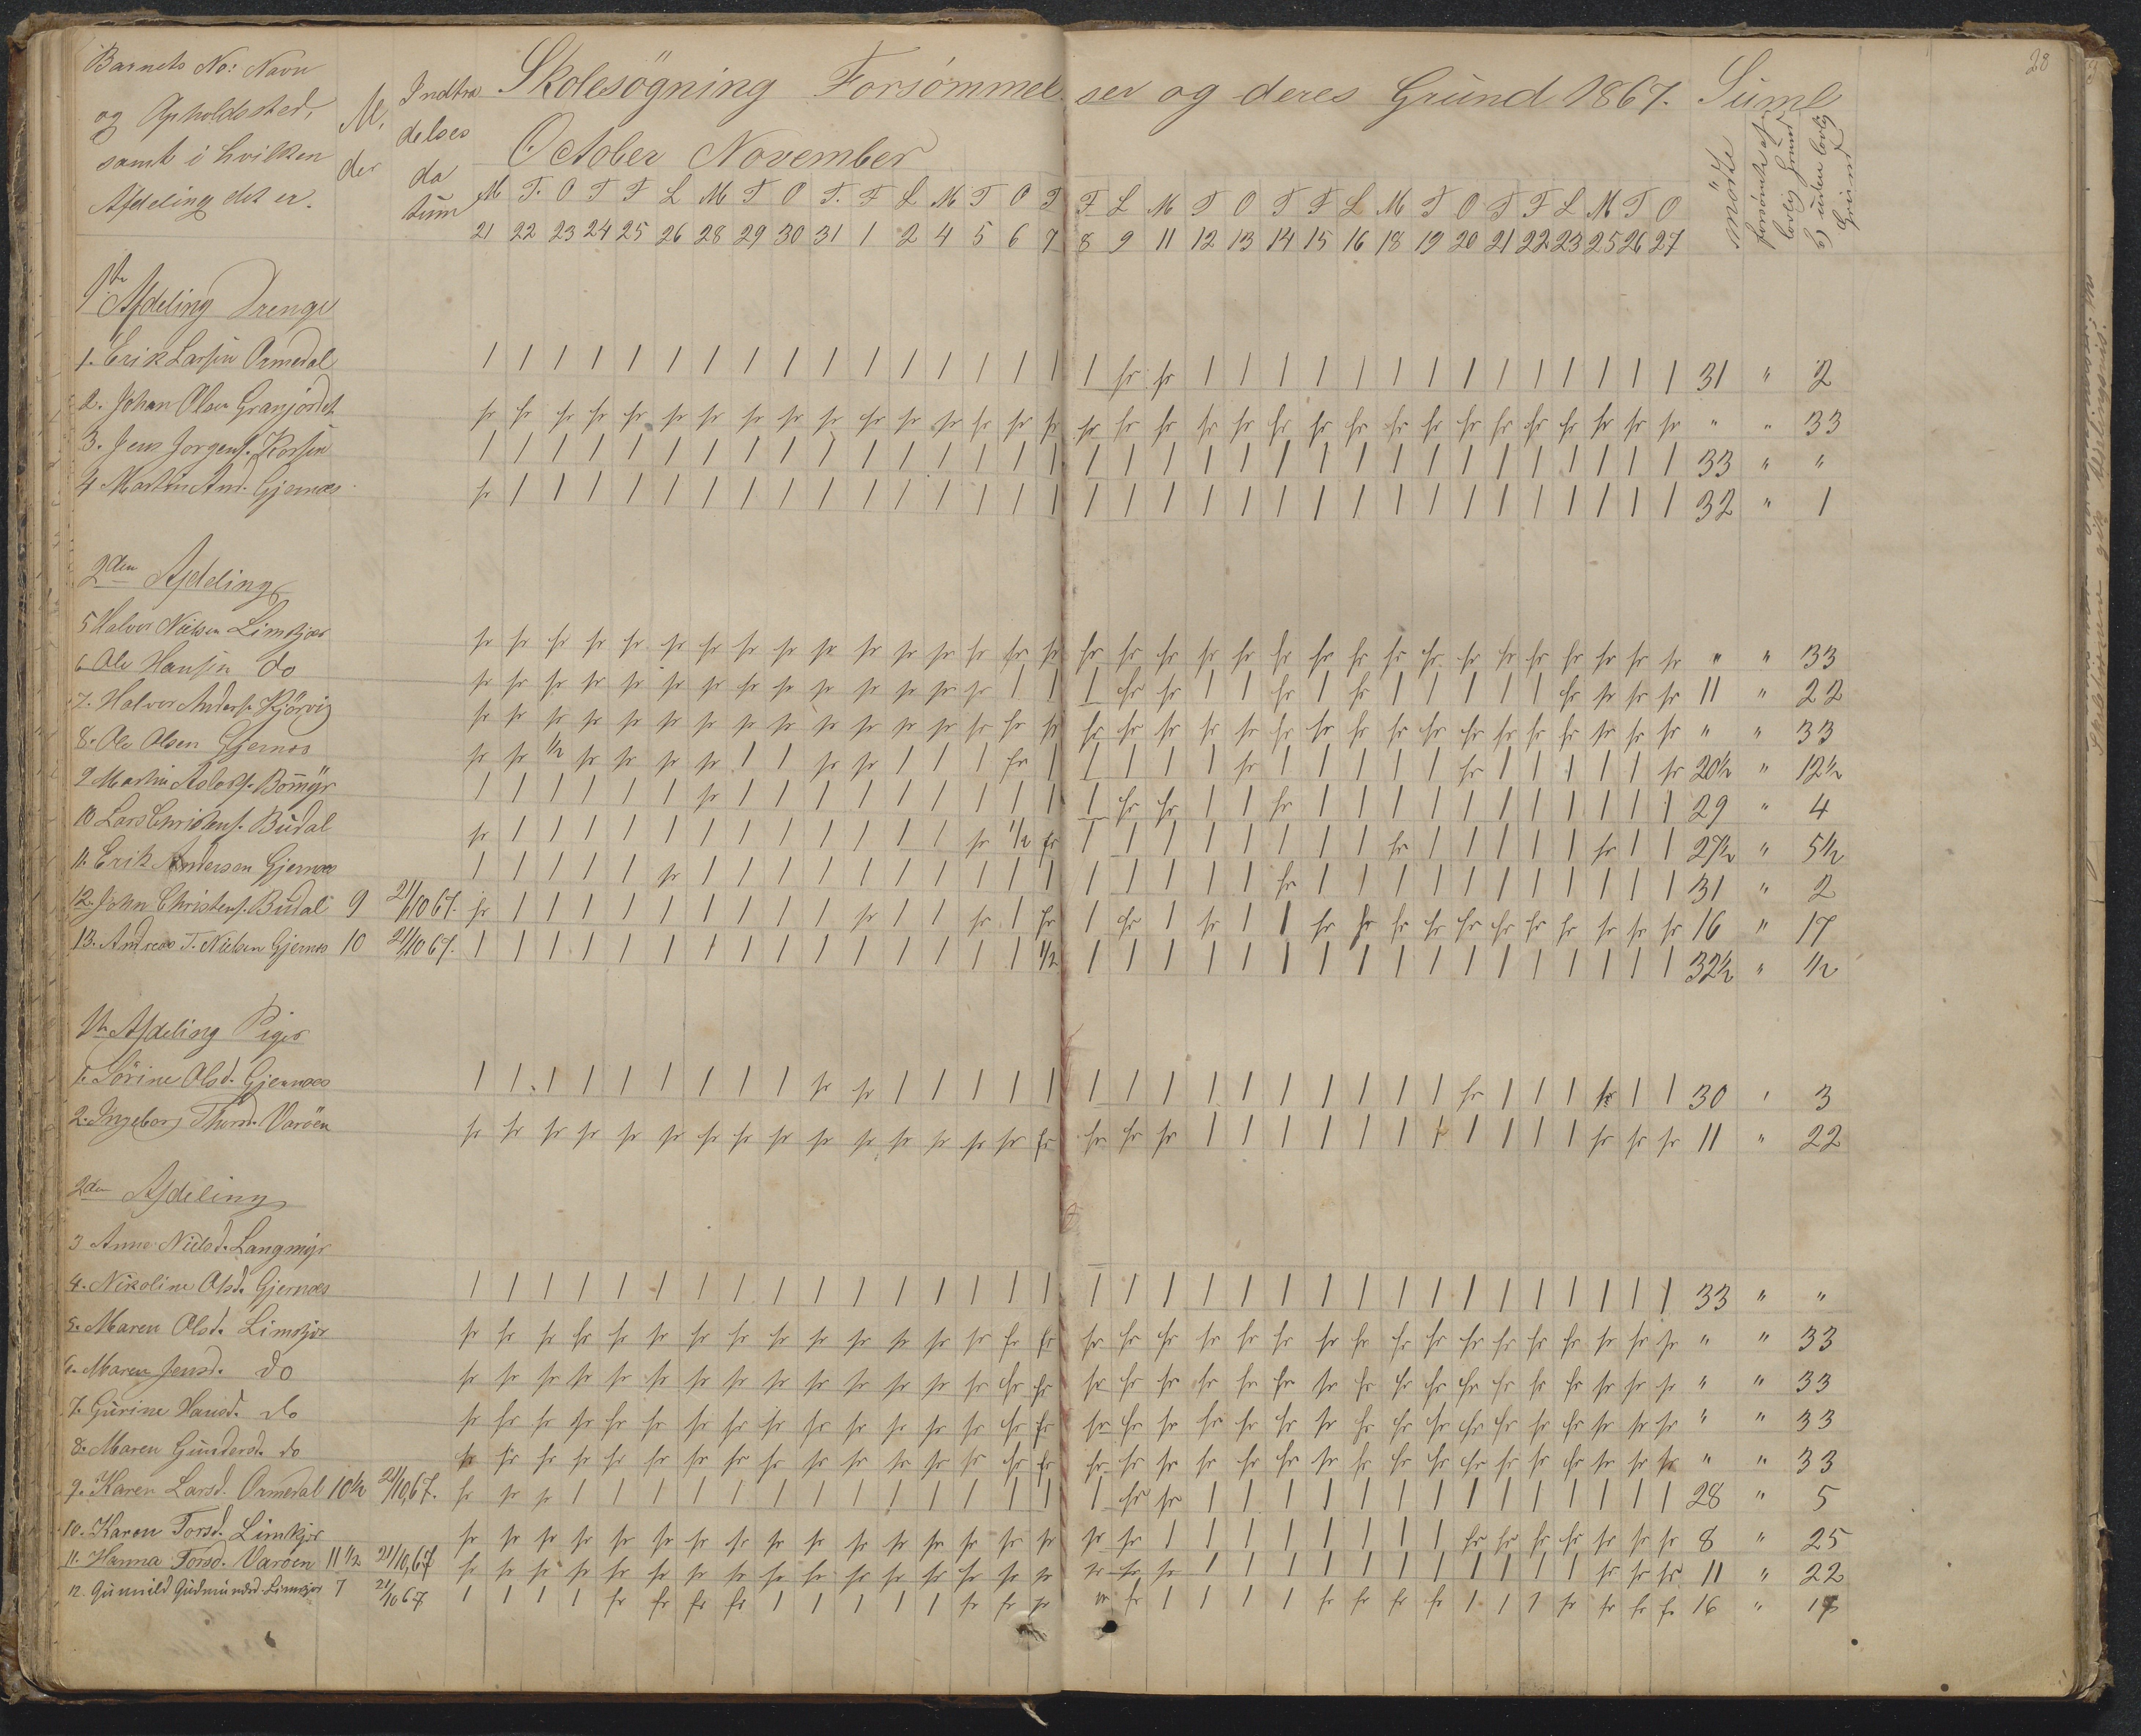 28
Barnets No: Navn
og Opholdssted,
samt i hvilken
Afdeling det er.
Al.
der
Indtræ
delses
da
tum
Skolesögning Forsömmel ser og deres Grund 1867.
Suml
October November
mödte
forsömte af lovlig Grund
b) uden lovlig Grund
M T. O T F L M T O T. F L M T O T F L M T O T F L M T O T F L M T O
21 22 23 24 25 26 28 29 30 31 1 2 4 5 6 7 8 9 11 12 13 14 15 16 18 19 20 21 22 23 25 26 27
1ste Afdeling Drenge
1. Erik Larsen Ormedal 1 1 1 1 1 1 1 1 1 1 1 1 1 1 1 1 1 fr fr 1 1 1 1 1 1 1 1 1 1 1 1 1 1 31 " 2
2. Johan Olsen Granjordet fr fr fr fr fr fr fr fr fr fr fr fr fr fr fr fr fr fr fr fr fr fr fr fr fr fr fr fr fr fr fr fr fr " " 33
3. Jens Jorgens. 1 1 1 1 1 1 1 1 1 1 1 1 1 1 1 1 1 1 1 1 1 1 1 1 1 1 1 1 1 1 1 1 1 33 " "
4 Martin And. Gjernæs fr 1 1 1 1 1 1 1 1 1 1 1 1 1 1 1 1 1 1 1 1 1 1 1 1 1 1 1 1 1 1 1 1 32 " 1
2den Afdeling
5 Halvor Nielsen Limkjær fr fr fr fr fr fr fr fr fr fr fr fr fr fr fr fr fr fr fr fr fr fr fr fr fr fr fr fr fr fr fr fr fr " " 33
6 Ole Hansen do fr fr fr fr fr fr fr fr fr fr fr fr fr fr 1 1 1 fr fr 1 1 fr 1 fr 1 1 1 1 1 fr fr fr fr 11 " 22
7. Halvor Anders. Kjörvig fr fr fr fr fr fr fr fr fr fr fr fr fr fr fr fr fr fr fr fr fr fr fr fr fr fr fr fr fr fr fr fr fr " " 33
8. Ole Olsen Gjernes fr fr 1/2 fr fr fr fr 1 1 fr fr 1 1 1 fr 1 1 1 1 1 fr 1 1 1 1 1 fr 1 1 1 1 1 fr 20 1/2 " 12 1/2
9 Martin 1 1 1 1 1 1 fr 1 1 1 1 1 1 1 1 1 1 fr fr 1 1 fr 1 1 1 1 1 1 1 1 1 1 1 29 " 4
10 Lars Christens. Budal fr 1 1 1 1 1 1 1 1 1 1 1 1 fr 1/2 fr 1 1 1 1 1 1 1 1 fr 1 1 1 1 1 fr 1 1 27 1/2 " 5 1/2
11. Erik Anderson Gjernæs 1 1 1 1 1 fr 1 1 1 1 1 1 1 1 1 1 1 1 1 1 1 fr 1 1 1 1 1 1 1 1 1 1 1 31 " 2
12. John Christens. Budal 9 21/10 67. fr 1 1 1 1 1 1 1 1 1 fr 1 1 fr 1 fr 1 fr 1 fr 1 1 fr fr fr fr fr fr fr fr fr fr fr 16 " 17
13. Andreas T. Nielsen Gjernes 10 21/10 67. 1 1 1 1 1 1 1 1 1 1 1 1 1 1 1 1/2 1 1 1 1 1 1 1 1 1 1 1 1 1 1 1 1 1 32 1/2 " 1/2
1ste Afdeling Piger
1. Sörine Olsd. Gjernæs 1 1 1 1 1 1 1 1 1 fr fr 1 1 1 1 1 1 1 1 1 1 1 1 1 1 1 fr 1 1 1 fr 1 1 30 " 3
2. Ingeborg Thord. Varöen fr fr fr fr fr fr fr fr fr fr fr fr fr fr fr fr fr fr fr 1 1 1 1 1 1 1 1 1 1 1 fr fr fr 11 " 22
2den Afdeling
3 Anne Nielsd. Langmyr
4. Nikoline Olsd. Gjernæs 1 1 1 1 1 1 1 1 1 1 1 1 1 1 1 1 1 1 1 1 1 1 1 1 1 1 1 1 1 1 1 1 1 33 " "
5. Maren Olsd. Limkjær fr fr fr fr fr fr fr fr fr fr fr fr fr fr fr fr fr fr fr fr fr fr fr fr fr fr fr fr fr fr fr fr fr " " 33
6. Maren Jensd. do fr fr fr fr fr fr fr fr fr fr fr fr fr fr fr fr fr fr fr fr fr fr fr fr fr fr fr fr fr fr fr fr fr " " 33
7. Gurine Hansd. do fr fr fr fr fr fr fr fr fr fr fr fr fr fr fr fr fr fr fr fr fr fr fr fr fr fr fr fr fr fr fr fr fr " " 33
8. Maren Gundersd. do fr fr fr fr fr fr fr fr fr fr fr fr fr fr fr fr fr fr fr fr fr fr fr fr fr fr fr fr fr fr fr fr fr " " 33
9. Karen Larsd. Ormedal 10 1/2 21/10,67. fr fr fr 1 1 1 1 1 1 1 1 1 1 1 1 1 1 fr fr 1 1 1 1 1 1 1 1 1 1 1 1 1 1 28 " 5
10. Karen Torsd. Limkjær fr fr fr fr fr fr fr fr fr fr fr fr fr fr fr fr fr fr 1 1 1 1 1 1 1 1 fr fr fr fr fr fr fr 8 " 25
11. Hanna Torsd. Varöen 11 1/2 21/10,67 fr fr fr fr fr fr fr fr fr fr fr fr fr fr fr fr fr fr fr 1 1 1 1 1 1 1 1 1 1 1 fr fr fr 11 " 22
12. Gunnild Gudmundsd. Limkjær 7 21/10 67 1 1 1 1 fr fr fr fr 1 1 1 1 1 fr fr fr fr fr 1 1 1 1 fr fr fr fr 1 1 1 fr fr fr fr 16 " 17